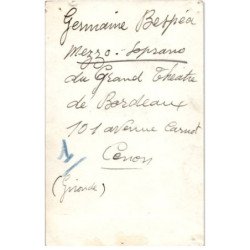 Germaine Bespéa
Mezzo-Soprano
du Grand Théatre
de Bordeaux
101 avenue Carnot
Cenon
(Gironde)